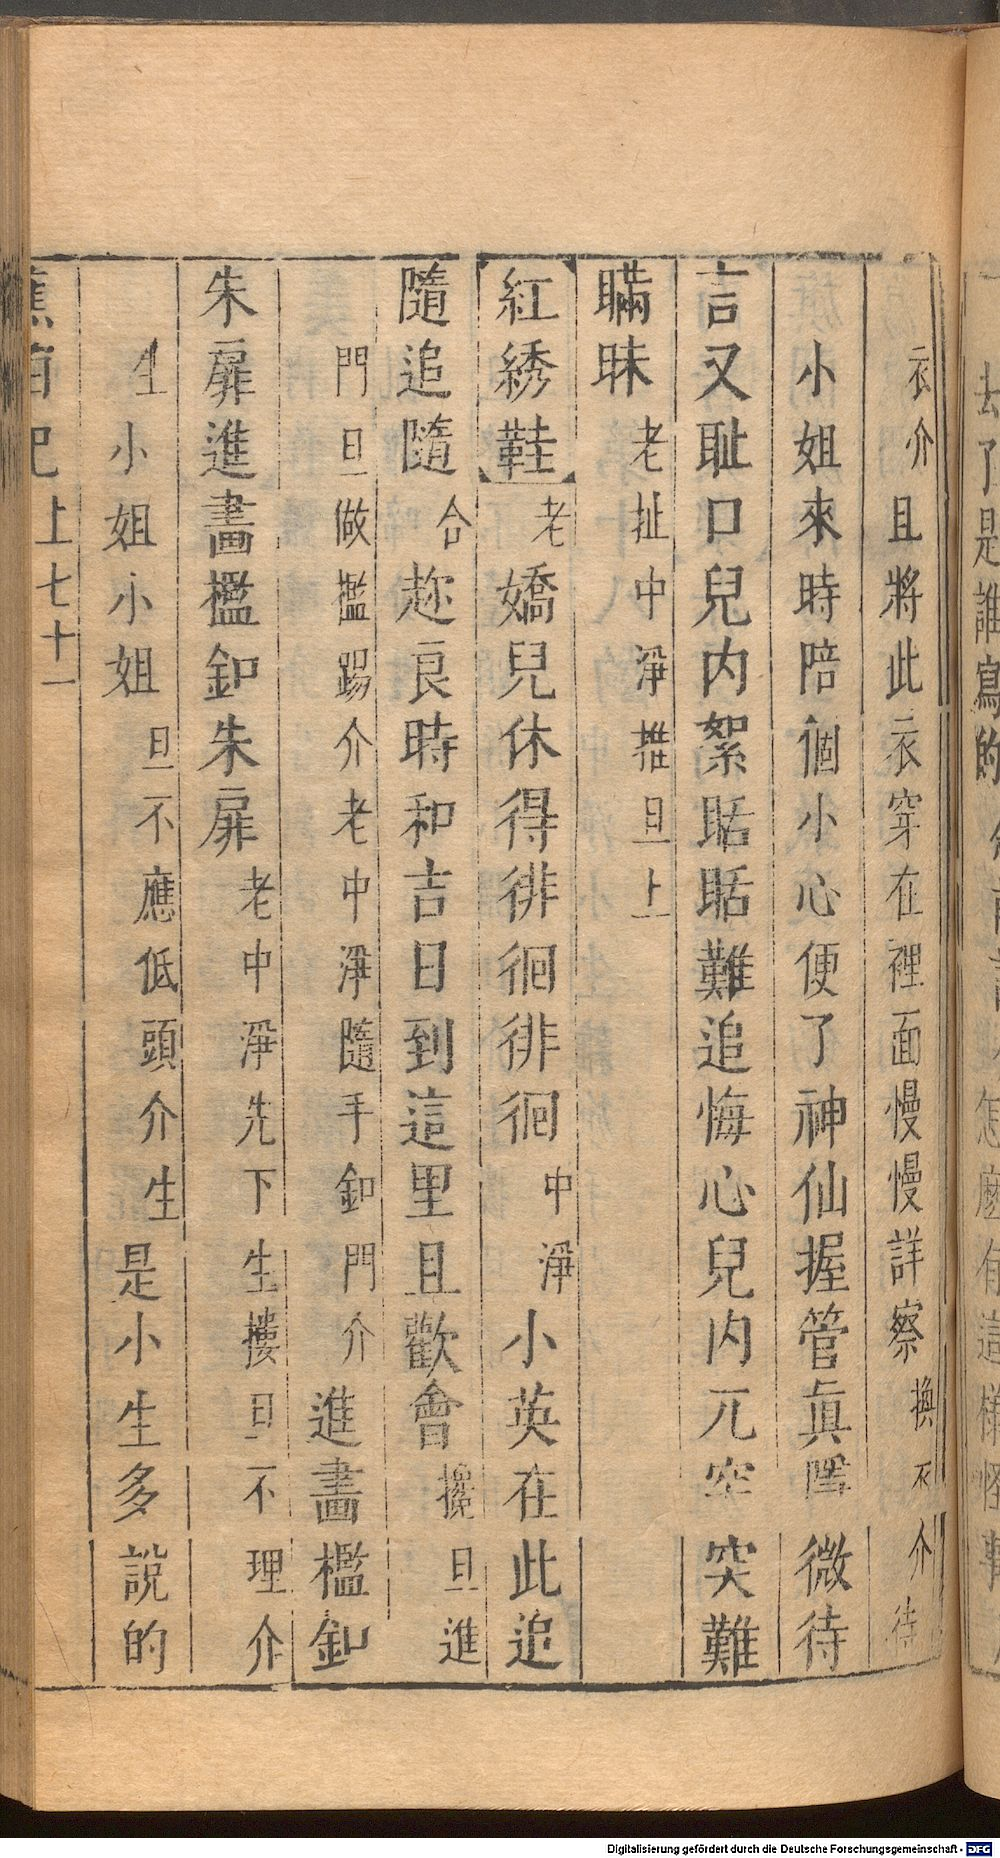 去了是誰寫的
怎麽有這樣怪事
衣介且將此衣穿在裡面慢慢詳察換衣介待
小姐來時陪個小心便了神仙握管眞 微待
言又耻口兒内絮聒聒難追悔心兒内兀 突難
瞞昧老扯中淨推旦上
紅綉鞋老嬌兒休得徘徊徘徊中淨小英在此追
隨追隨合趂良時和吉日到這里且歡會攙旦進
門旦做檻踢介老中淨隨手釦門介進畫檻釦
朱扉進畫檻釦朱扉老中淨先下生摟旦不理介
生小姐小姐旦不應低頭介生是小生多說的
蕉 記上七十一
Digitalisierung gefördert durch die Deutsche Forschungsgemeinschaft - DFG